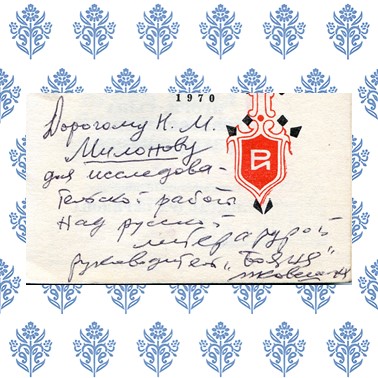 1970
Дорогому Н. М.
Милонову
для исследова-
тельской работы
над русской
литературой
руководитель "Бояна"